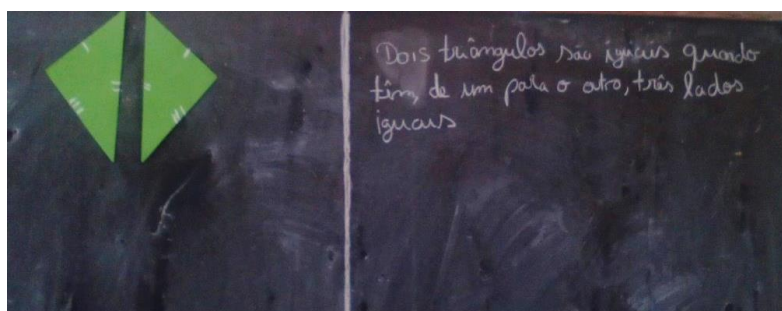 Dois triângulos são iguais quando
têm, de um para o outro, três lados
iguais